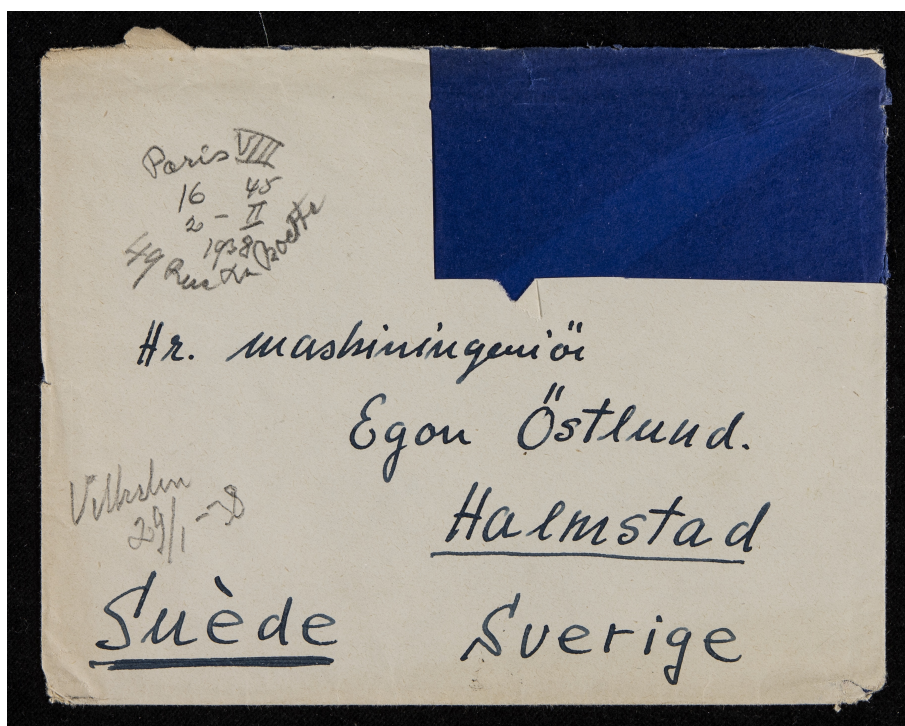 Paris VIII
16 45
2 - II
1938
49 Rue La Boétie
Hr. maskiningeniör
Egon Östlund.
Halmstad
29/1 -38
Suède
Sverige